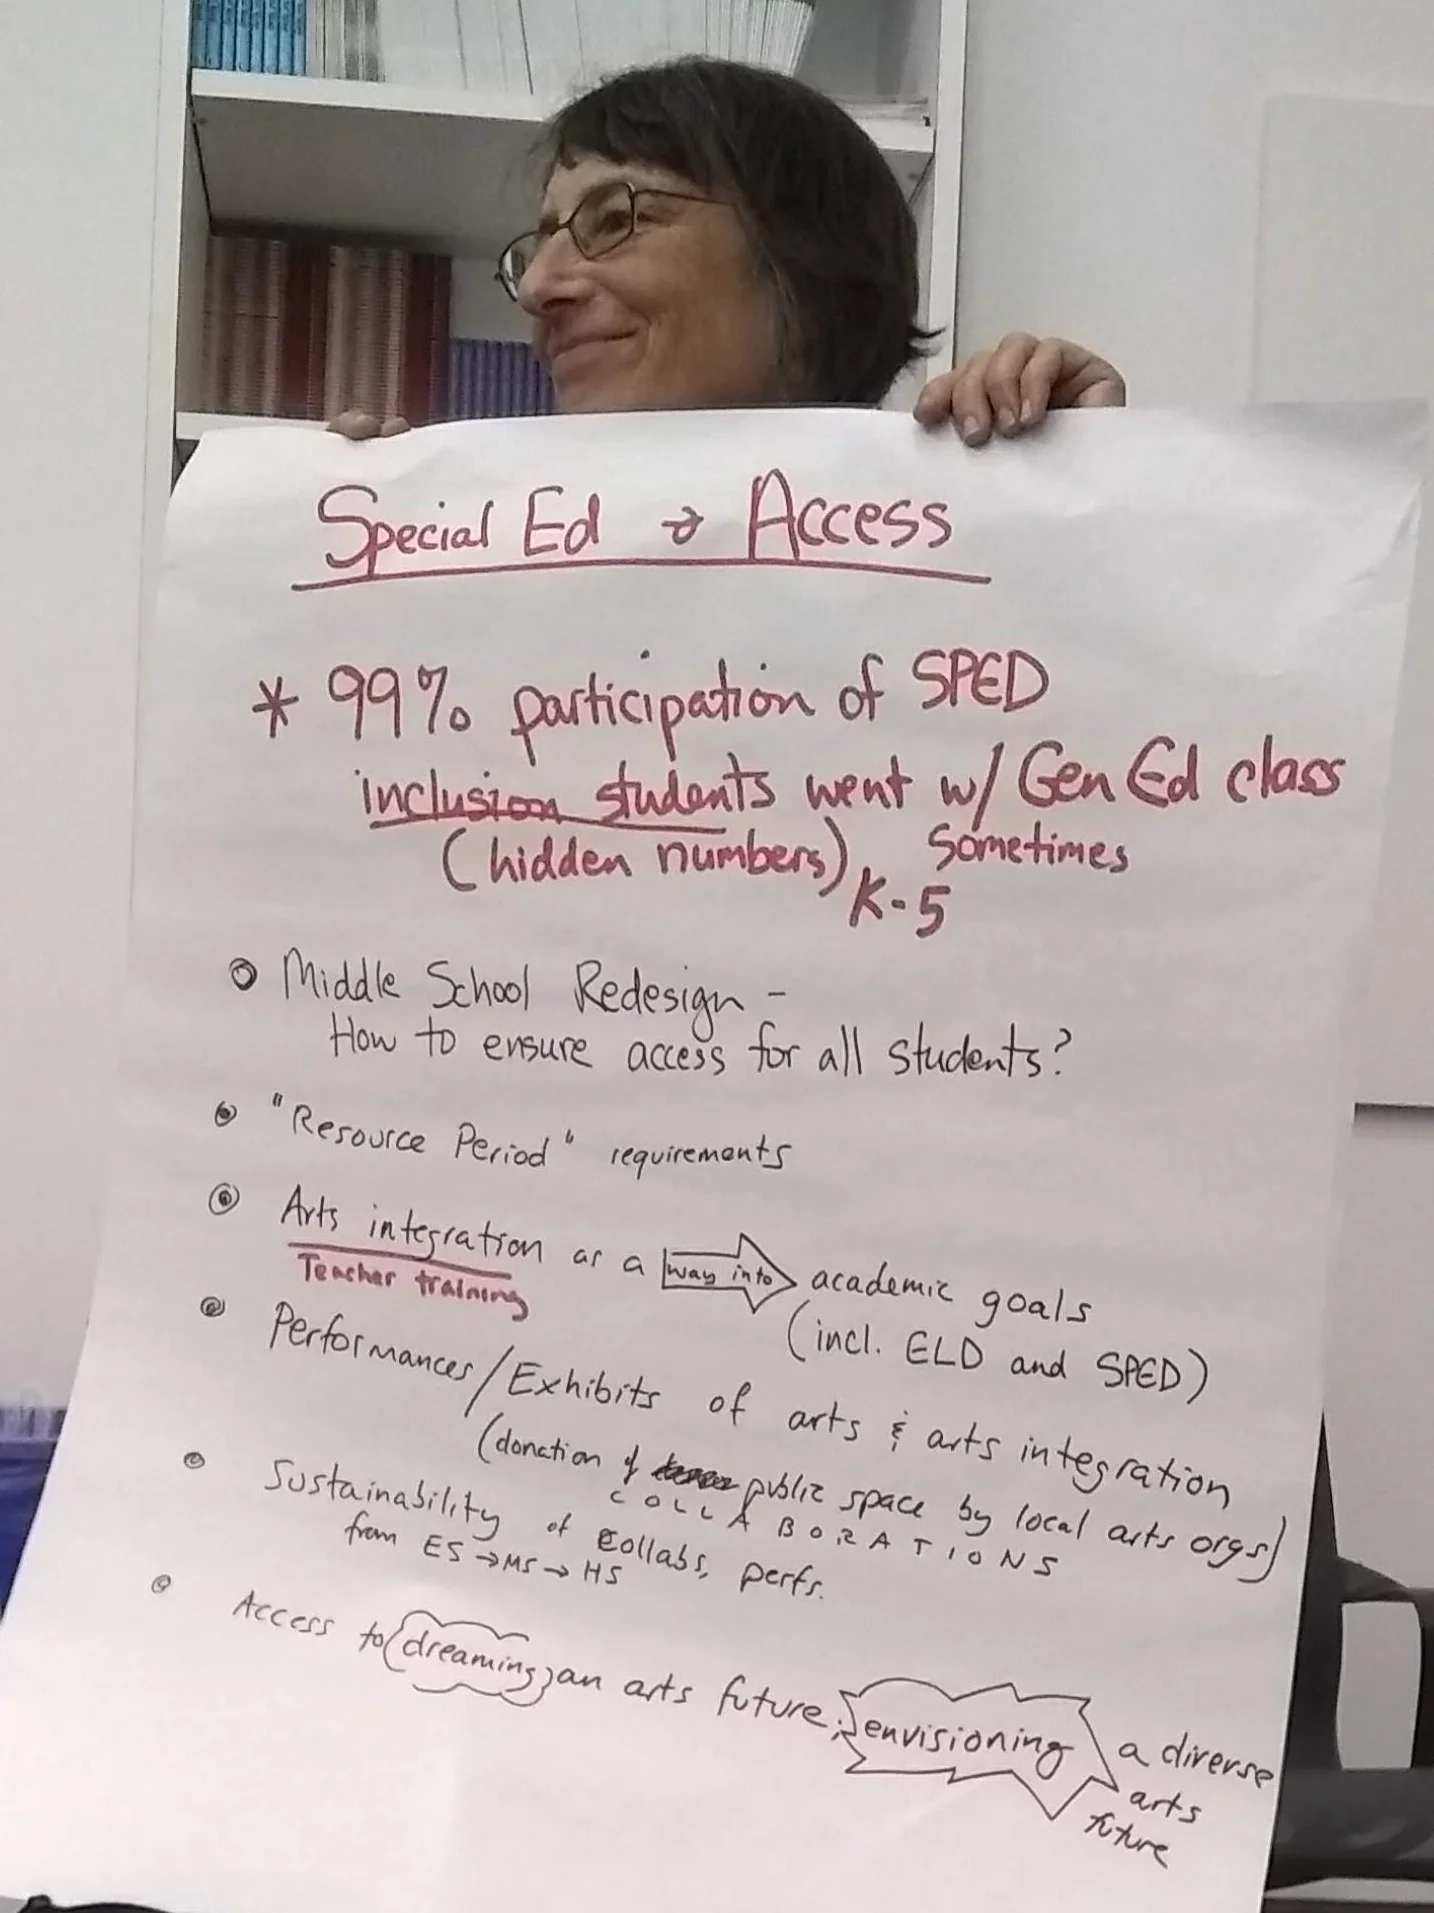 Special Ed → Access
* 99% participation of SPED
inclusion students went w/ Gen Ed class
(hidden numbers) sometimes
K-5
Middle School Redesign -
How to ensure access for all students?
"Resource Period" requirements
Arts integration as a way into academic goals
Teacher training
(incl. ELD and SPED)
Performances/Exhibits of arts & arts integration
(donation of public space by local arts orgs)
COLLABORATIONS
Sustainability of collabs, perfs.
from ES → MS → HS
Access to dreaming an arts future; envisioning a diverse
arts
future